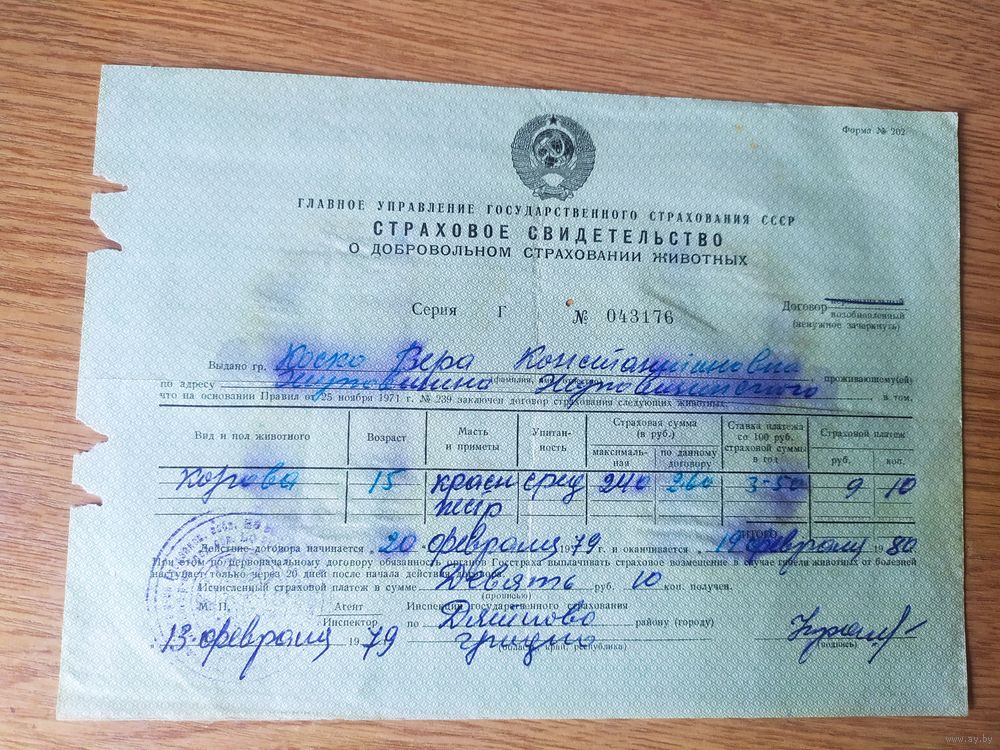 Форма № 202
ГЛАВНОЕ УПРАВЛЕНИЕ ГОСУДАРСТВЕННОГО СТРАХОВАНИЯ СССР
СТРАХОВОЕ СВИДЕТЕЛЬСТВО
О ДОБРОВОЛЬНОМ СТРАХОВАНИИ ЖИВОТНЫХ
Серия Г № 043176
Договор первоначальный
возобновленный
(ненужное зачеркнуть)
Выдано гр. Коско Вера Константиновна проживающему(ей)
по адресу в том,
что на основании Правил от 25 ноября 1971 г. № 239 заключен договор страхования следующих животных:
Вид и пол животного Возраст Масть и приметы Упитанность Страховая сумма (в руб.) максимальная по данному договору Ставка платежа со 100 руб. страховой суммы в год Страховой платеж руб. коп.
Корова 15 красн сред 240 260 3-50 9 10
ИТОГО
Действие договора начинается 20 февраля 1979 г. и оканчивается 19 февраля 1980
При этом по первоначальному договору обязанность органов Госстраха выплачивать страховое возмещение в случае гибели животных от болезней
наступает только через 20 дней после начала действия договора.
Исчисленный страховой платеж в сумме Девять руб. 10 коп. получен.
(прописью)
М. П. Агент Инспекции государственного страхования
Инспектор по Дятлово району (городу)
13 февраля 1979
(область, край, республика)
(подпись)
www.ay.by